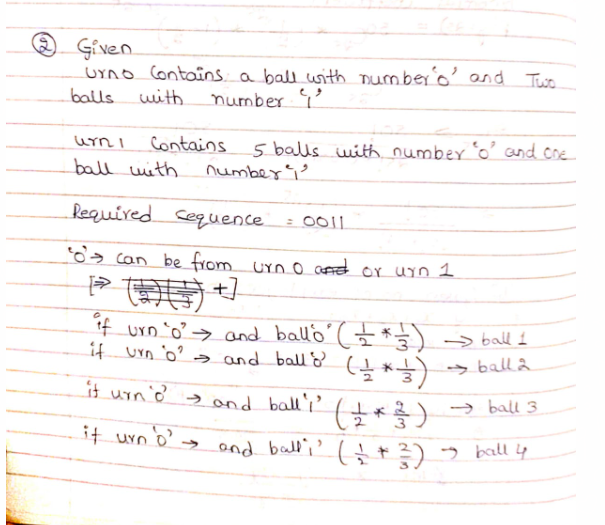 ② Given
urn0 Contains a ball with number '0' and Two
balls with number '1'
urn1 Contains 5 balls with number '0' and one
ball with number '1'
Required sequence = 0011
'0' → can be from urn 0 and or urn 1
[⇒ (1/2)(1/3) +]
if urn '0' → and ball '0' (1/2 * 1/3) → ball 1
if urn '0' → and ball '0' (1/2 * 1/3) → ball 2
if urn '0' → and ball '1' (1/2 * 2/3) → ball 3
if urn '0' → and ball '1' (1/2 * 2/3) → ball 4